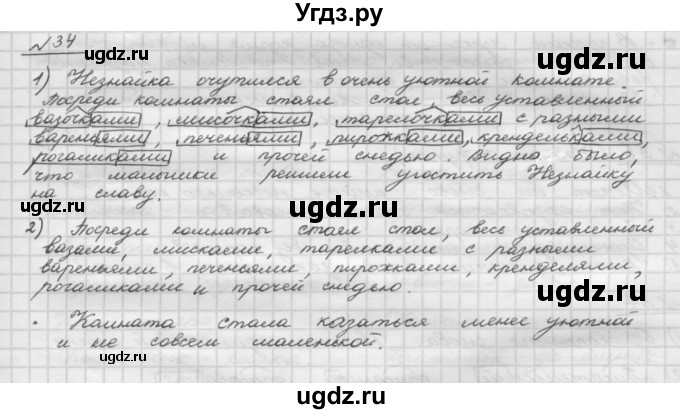 Угдз.ру
№34
1) Незнайка очутился в очень уютной комнате.
Посреди комнаты стоял стол, весь уставленный
вазочками, мисочками, тарелочками с разными
вареньями, печеньями, пирожками, крендельками,
рогаликами и прочей снедью. Видно было,
что малышки решили угостить Незнайку
на славу.
2) Посреди комнаты стоял стол, весь уставленный
вазами, мисками, тарелками с разными
вареньями, печеньями, пирожками, кренделями,
рогаликами и прочей снедью.
• Комната стала казаться менее уютной
и не совсем маленькой.
ugdz.ru
ugdz.ru
ugdz.ru
ugdz.ru
ugdz.ru
ugdz.ru
ugdz.ru
ugdz.ru
ugdz.ru
ugdz.ru
ugdz.ru
ugdz.ru
ugdz.ru
ugdz.ru